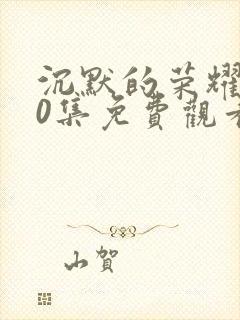 沉默的荣耀
0集免費觀看
山賀